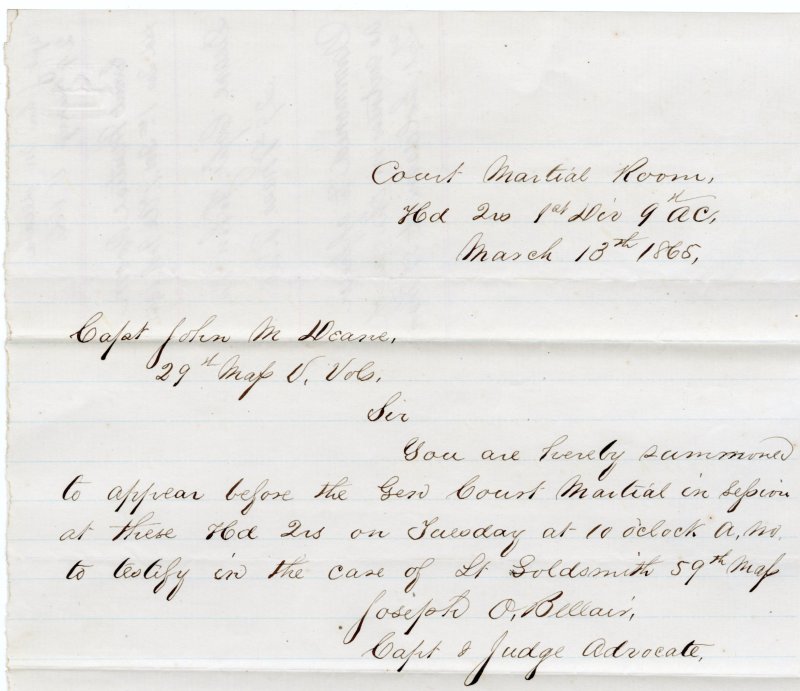 Court Martial Room,
Hd Qrs 1st Div 9th AC,
March 13th 1865,
Capt John M Deane,
29th Mass V. Vols,
Sir
You are hereby summoned
to appear before the Gen Court Martial in Session
at these Hd Qrs on Tuesday at 10 o'clock A, M,
to testify in the case of Lt Goldsmith 59th Mass
Joseph O, Bellair,
Capt & Judge Advocate,